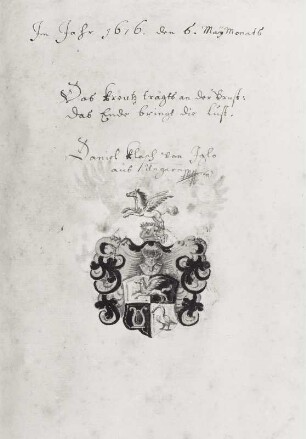 Im Jahr 1616. den 6. May Monats
Das Kreutz tragts an der Brust:
das Ende bringt die Lust.
Daniel Klesch von Iglo
aus Ungern